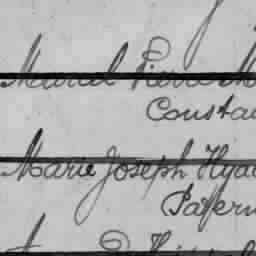 Marcel Pierre M
Consta
Marie Joseph Hyac
Patern